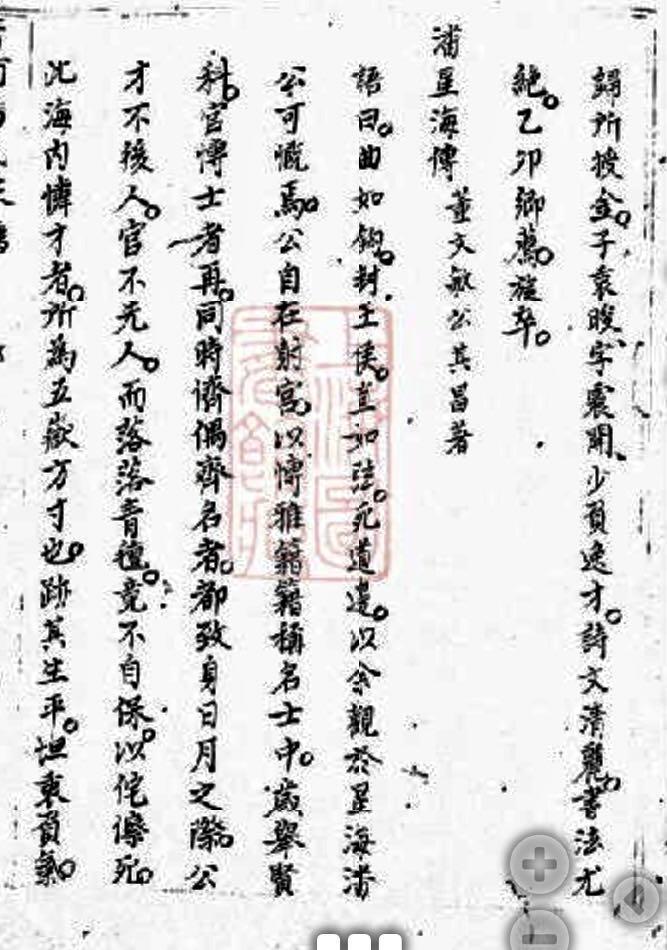 歸所授金。子袁晙字震開、少負逸才。詩文清麗。書法尤
絶。乙卯鄉薦。旋卒。
潘星海傳 董文敏公其昌著
語曰。曲如鈎。封王侯。直如弦。死道邊。以余觀於星海潘
公可慨焉。公自在射宮。以博雅籍籍稱名士中。歲舉賢
科。官博士者再。同時儕偶齊名者。都致身日月之際。公
才不後人。官不先人。而落落青氊。竟不自保。以侘傺死。
况海內憐才者。所為五嶽方寸也。跡其生平。坦衷負氣。